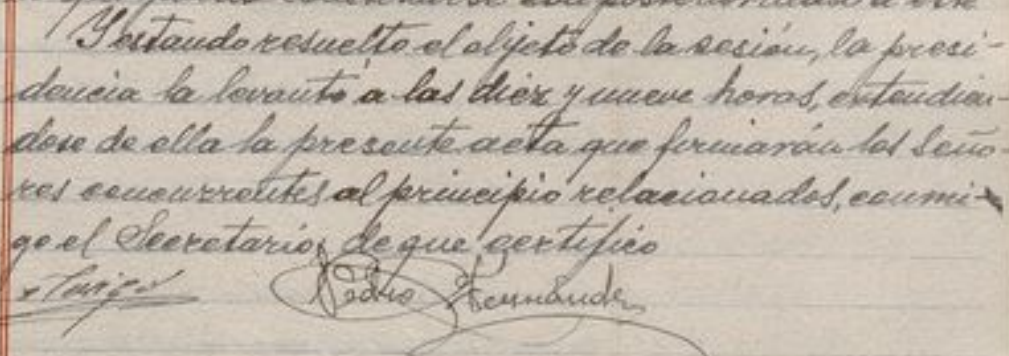 con posterioridad a este
Y estando resuelto el objeto de la sesión, la presi-
dencia la levantó a las diez y nueve horas, extendien-
dose de ella la presente acta que firmarán los Seño-
res concurrentes al principio relacionados, conmi-
go el Secretario, de que certifico
Pedro Hernández